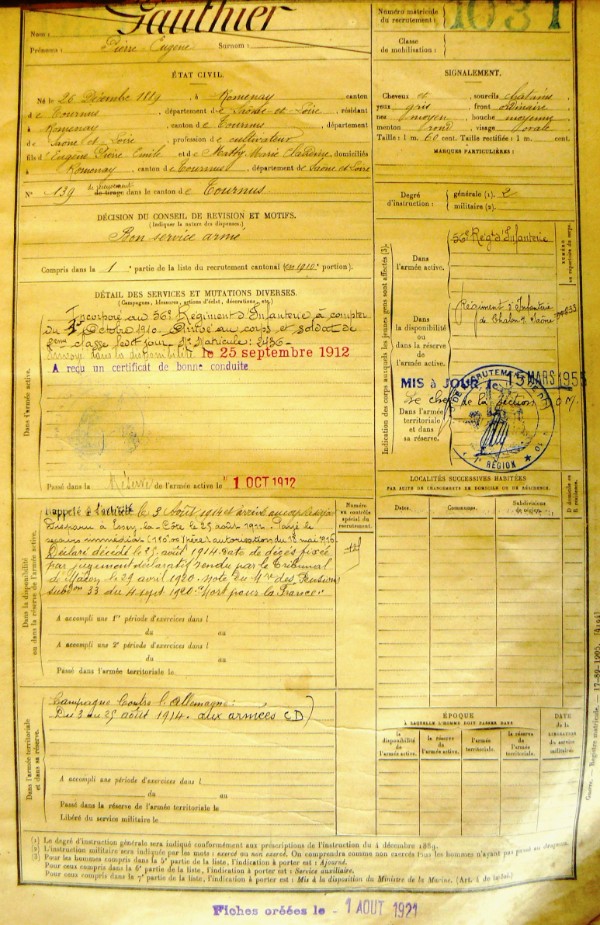 Nom : Gauthier
Prénoms : Pierre Eugène Surnom :
Numéro matricule du recrutement : 1031
Classe de mobilisation :
ÉTAT CIVIL.
Né le 26 Décembre 1889, à Romenay, canton
de Tournus, département de Saône-et-Loire, résidant
à Romenay, canton de Tournus, département
de Saône et Loire, profession de cultivateur
fils d'Eugène Pierre Emile et de Marie Claudine, domiciliés
à Romenay, canton de Tournus, département de Saône et Loire
N° 139 de tirage dans le canton de Tournus.
SIGNALEMENT.
Cheveux et sourcils châtains
yeux gris, front ordinaire
nez moyen, bouche moyenne
menton rond, visage ovale
Taille : 1 m. 60 cent. Taille rectifiée : 1 m. cent.
MARQUES PARTICULIÈRES :
Degré d'instruction : générale (1). 2
militaire (2).
DÉCISION DU CONSEIL DE REVISION ET MOTIFS.
(Indiquer la nature des dispenses.)
Bon service armé
Compris dans la 1e partie de la liste du recrutement cantonal
DÉTAIL DES SERVICES ET MUTATIONS DIVERSES.
(Campagnes, blessures, actions d'éclat, décorations, etc.)
Incorporé au 56e Régiment d'Infanterie à compter
du Octobre 1910. Arrivé au corps et soldat de
2ème classe ledit jour. N° Matricule : 2436
Envoyé dans la disponibilité le 25 septembre 1912
A reçu un certificat de bonne conduite
Dans l'armée active.
Passé dans la Réserve de l'armée active le 1 OCT 1912
Indication des corps auxquels les jeunes gens sont affectés (3).
Dans l'armée active.
56e Régt d'Infanterie
Dans la disponibilité ou dans la réserve de l'armée active.
Régiment d'Infanterie
de Chalon s/ Saône
MIS à JOUR, le 15 MARS 1955
Le chef de la Section
Dans l'armée territoriale et dans sa réserve.
LOCALITÉS SUCCESSIVES HABITÉES
PAR SUITE DE CHANGEMENTS DE DOMICILE OU DE RÉSIDENCE.
Dates.
Communes.
Subdivisions de région.
D domicile ou R résidence.
Dans la disponibilité ou dans la réserve de l'armée active.
Numéro au contrôle spécial du recrutement.
Rappelé à l'activité le 3 Août 1914 et arrivé au corps
Disparu à le 25 août 1914. Payé le
secours immédiat (150f au père) autorisation du mai 1916.
Déclaré décédé le 25 août 1914 date de décès fixée
par jugement déclaratif rendu par le Tribunal
de Macon le 29 avril 1920. Note du Mre des Pensions
33 du 4 sept 1920 "Mort pour la France"
A accompli une 1re période d'exercices dans l
du au
A accompli une 2e période d'exercices dans l
du au
Passé dans l'armée territoriale le
Dans l'armée territoriale et dans sa réserve.
Campagne Contre l'Allemagne :
Du 3 au 25 août 1914 aux armées (D)
A accompli une période d'exercices dans l
du au
Passé dans la réserve de l'armée territoriale le
Libéré du service militaire le
ÉPOQUE
À LAQUELLE L'HOMME DOIT PASSER DANS
la disponibilité de l'armée active.
la réserve de l'armée active.
l'armée territoriale.
la réserve de l'armée territoriale.
DATE de la LIBÉRATION du service militaire.
(1) Le degré d'instruction générale sera indiqué conformément aux prescriptions de l'instruction du 4 décembre 1889.
(2) L'instruction militaire sera indiquée par les mots : exercé ou non exercé. On comprendra comme non exercés tous les hommes n'ayant pas passé au drapeau.
(3) Pour les hommes compris dans la 5e partie de la liste, l'indication à porter est : Ajourné.
Pour ceux compris dans la 6e partie de la liste, l'indication à porter est : Service auxiliaire.
Pour ceux compris dans la 7e partie de la liste, l'indication à porter est : Mis à la disposition du Ministre de la Marine.
Fiches créées le - 1 AOUT 1921